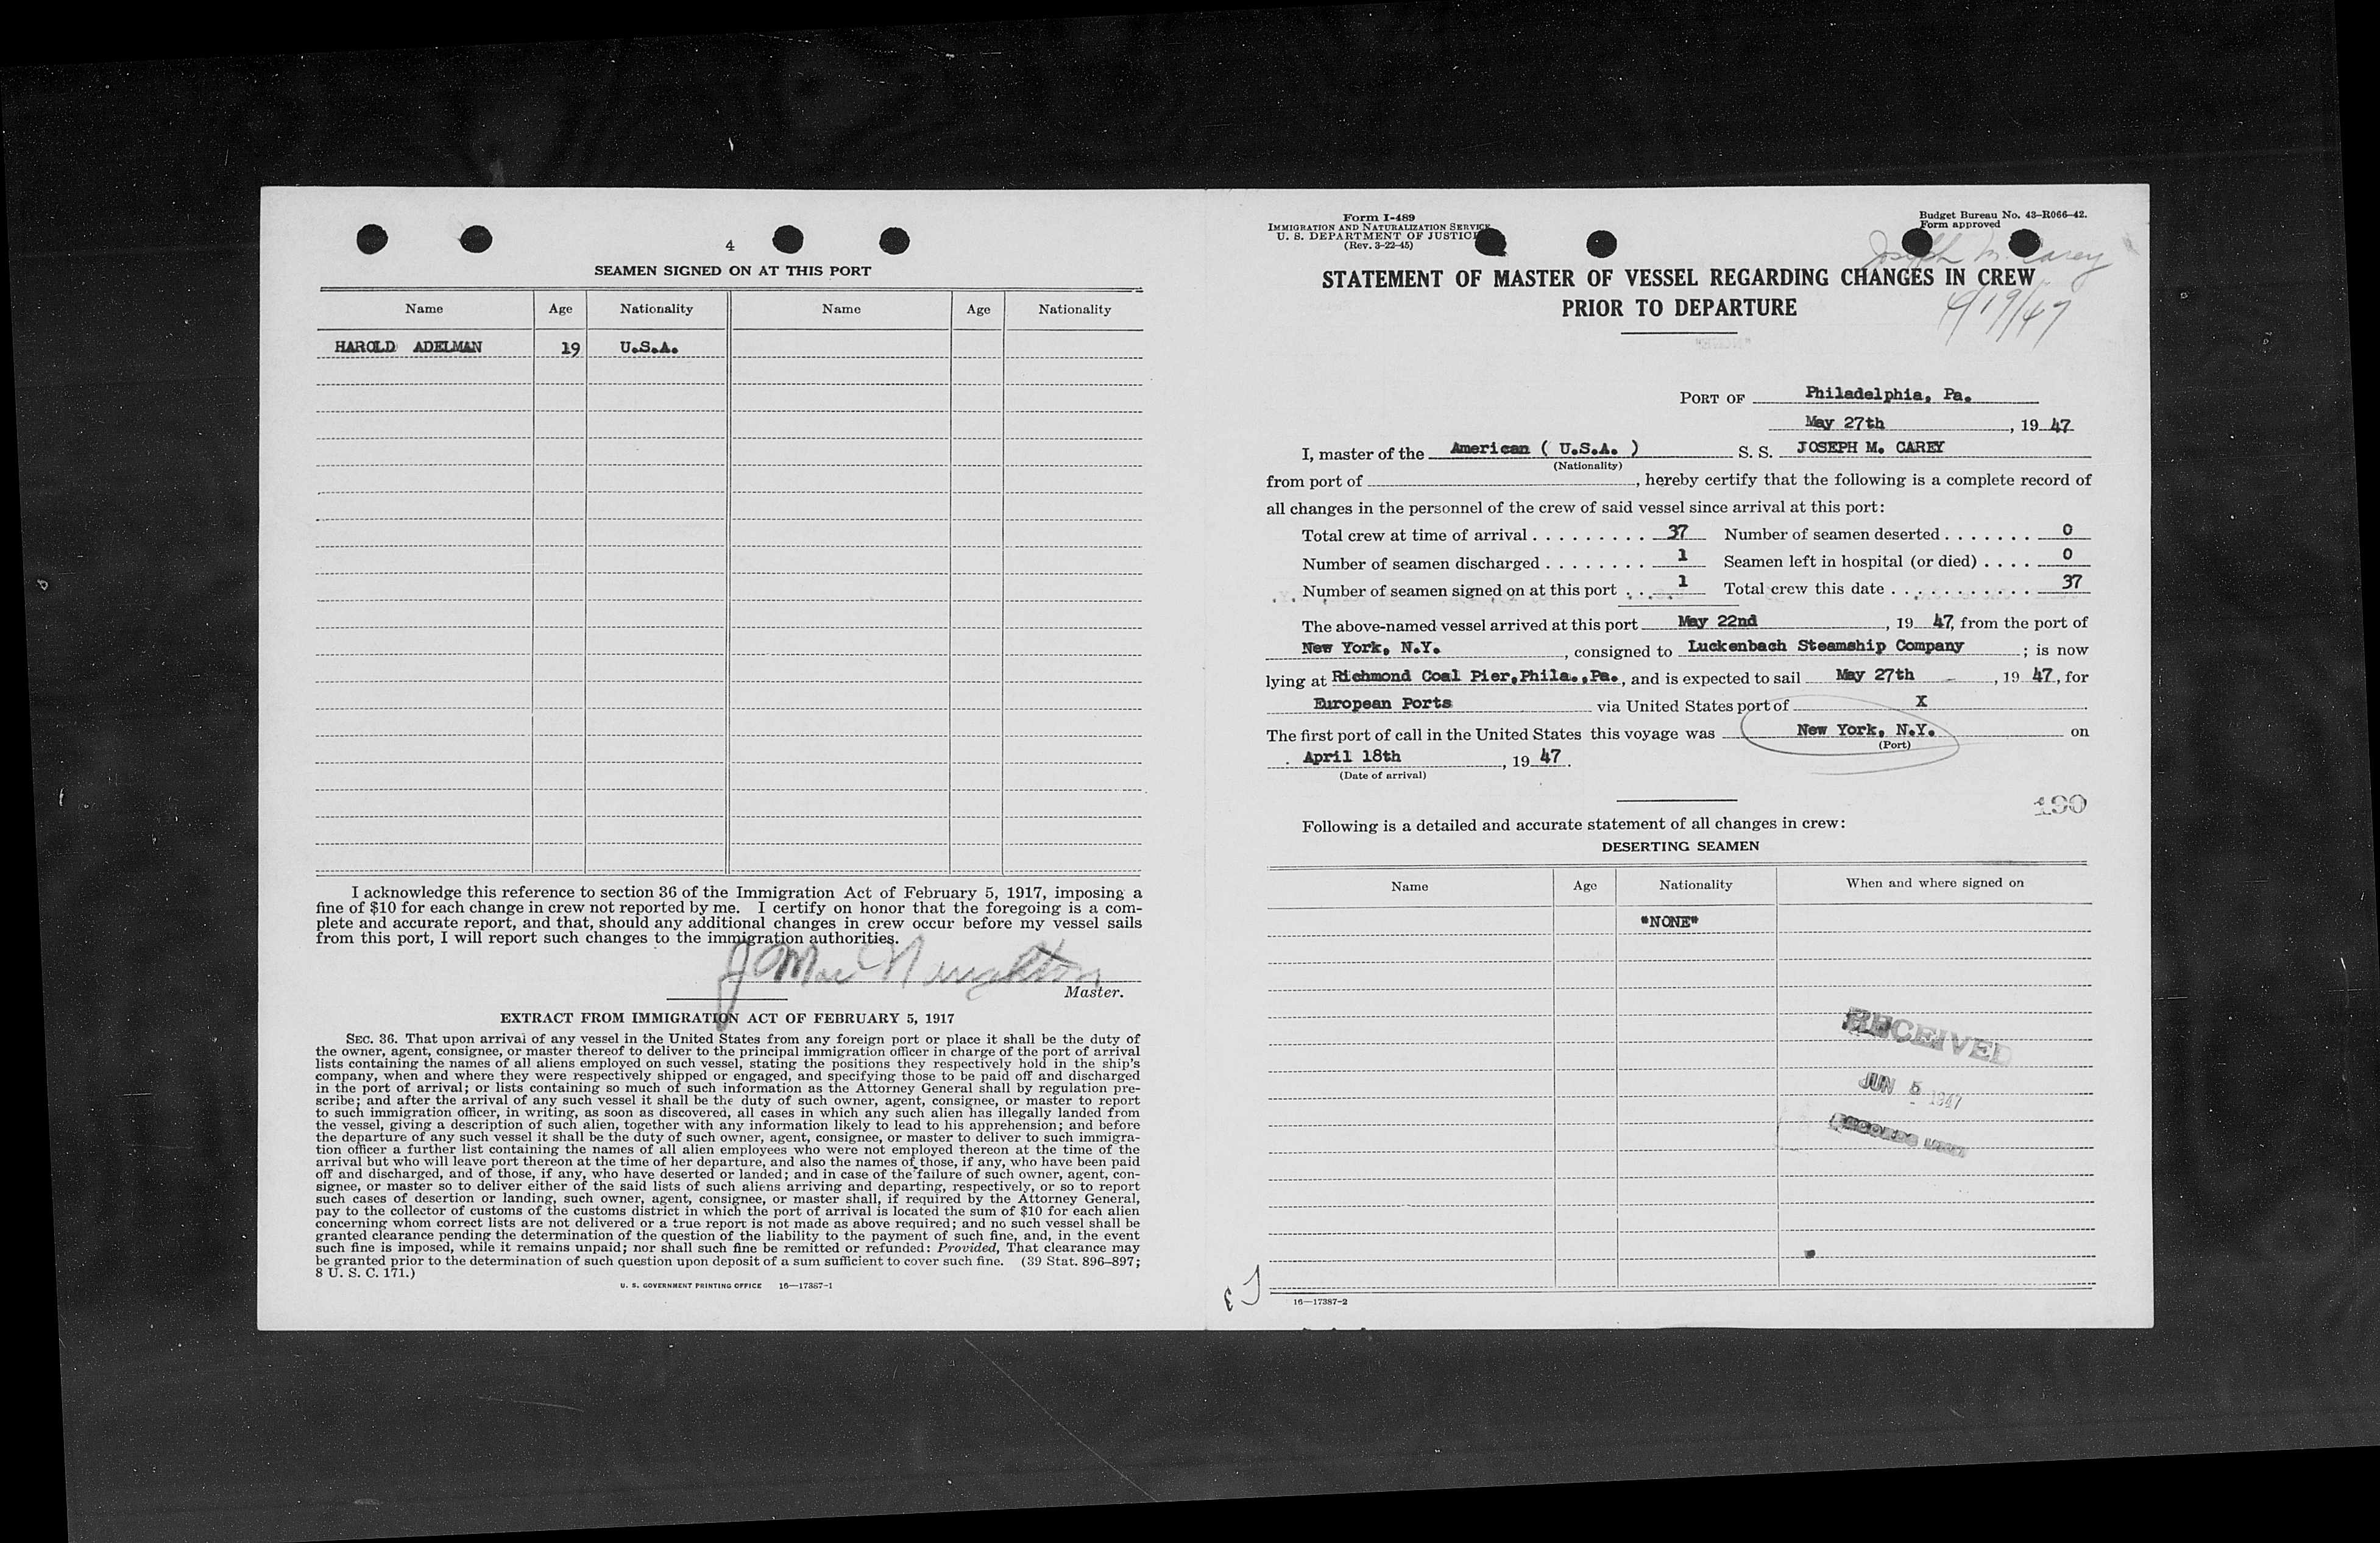 4
SEAMEN SIGNED ON AT THIS PORT
Name Age Nationality Name Age Nationality
HAROLD ADELMAN 19 U.S.A.
I acknowledge this reference to section 36 of the Immigration Act of February 5, 1917, imposing a
fine of $10 for each change in crew not reported by me. I certify on honor that the foregoing is a com-
plete and accurate report, and that, should any additional changes in crew occur before my vessel sails
from this port, I will report such changes to the immigration authorities.
Master.
EXTRACT FROM IMMIGRATION ACT OF FEBRUARY 5, 1917
SEC. 36. That upon arrival of any vessel in the United States from any foreign port or place it shall be the duty of
the owner, agent, consignee, or master thereof to deliver to the principal immigration officer in charge of the port of arrival
lists containing the names of all aliens employed on such vessel, stating the positions they respectively hold in the ship's
company, when and where they were respectively shipped or engaged, and specifying those to be paid off and discharged
in the port of arrival; or lists containing so much of such information as the Attorney General shall by regulation pre-
scribe; and after the arrival of any such vessel it shall be the duty of such owner, agent, consignee, or master to report
to such immigration officer, in writing, as soon as discovered, all cases in which any such alien has illegally landed from
the vessel, giving a description of such alien, together with any information likely to lead to his apprehension; and before
the departure of any such vessel it shall be the duty of such owner, agent, consignee, or master to deliver to such immigra-
tion officer a further list containing the names of all alien employees who were not employed thereon at the time of the
arrival but who will leave port thereon at the time of her departure, and also the names of those, if any, who have been paid
off and discharged, and of those, if any, who have deserted or landed; and in case of the failure of such owner, agent, con-
signee, or master so to deliver either of the said lists of such aliens arriving and departing, respectively, or so to report
such cases of desertion or landing, such owner, agent, consignee, or master shall, if required by the Attorney General,
pay to the collector of customs of the customs district in which the port of arrival is located the sum of $10 for each alien
concerning whom correct lists are not delivered or a true report is not made as above required; and no such vessel shall be
granted clearance pending the determination of the question of the liability to the payment of such fine, and, in the event
such fine is imposed, while it remains unpaid; nor shall such fine be remitted or refunded: Provided, That clearance may
be granted prior to the determination of such question upon deposit of a sum sufficient to cover such fine. (39 Stat. 896–897;
8 U. S. C. 171.)
U. S. GOVERNMENT PRINTING OFFICE 16—17387-1
Form I-489
IMMIGRATION AND NATURALIZATION SERVICE
U. S. DEPARTMENT OF JUSTICE
(Rev. 3-22-45)
Budget Bureau No. 43-R066-42.
Form approved
Joseph M. Carey
4/19/47
STATEMENT OF MASTER OF VESSEL REGARDING CHANGES IN CREW
PRIOR TO DEPARTURE
PORT OF Philadelphia, Pa.
May 27th, 19 47
I, master of the American ( U.S.A. ) S. S. JOSEPH M. CAREY
(Nationality)
from port of , hereby certify that the following is a complete record of
all changes in the personnel of the crew of said vessel since arrival at this port:
Total crew at time of arrival 37 Number of seamen deserted 0
Number of seamen discharged 1 Seamen left in hospital (or died) 0
Number of seamen signed on at this port 1 Total crew this date 37
The above-named vessel arrived at this port May 22nd, 19 47, from the port of
New York, N.Y., consigned to Luckenbach Steamship Company; is now
lying at Richmond Coal Pier,Phila.,Pa., and is expected to sail May 27th, 19 47, for
European Ports via United States port of X
The first port of call in the United States this voyage was New York, N.Y. on
(Port)
April 18th, 19 47.
(Date of arrival)
190
Following is a detailed and accurate statement of all changes in crew:
DESERTING SEAMEN
Name Age Nationality When and where signed on
"NONE"
RECEIVED
JUN 5 1947
RECORDS
16—17387-2